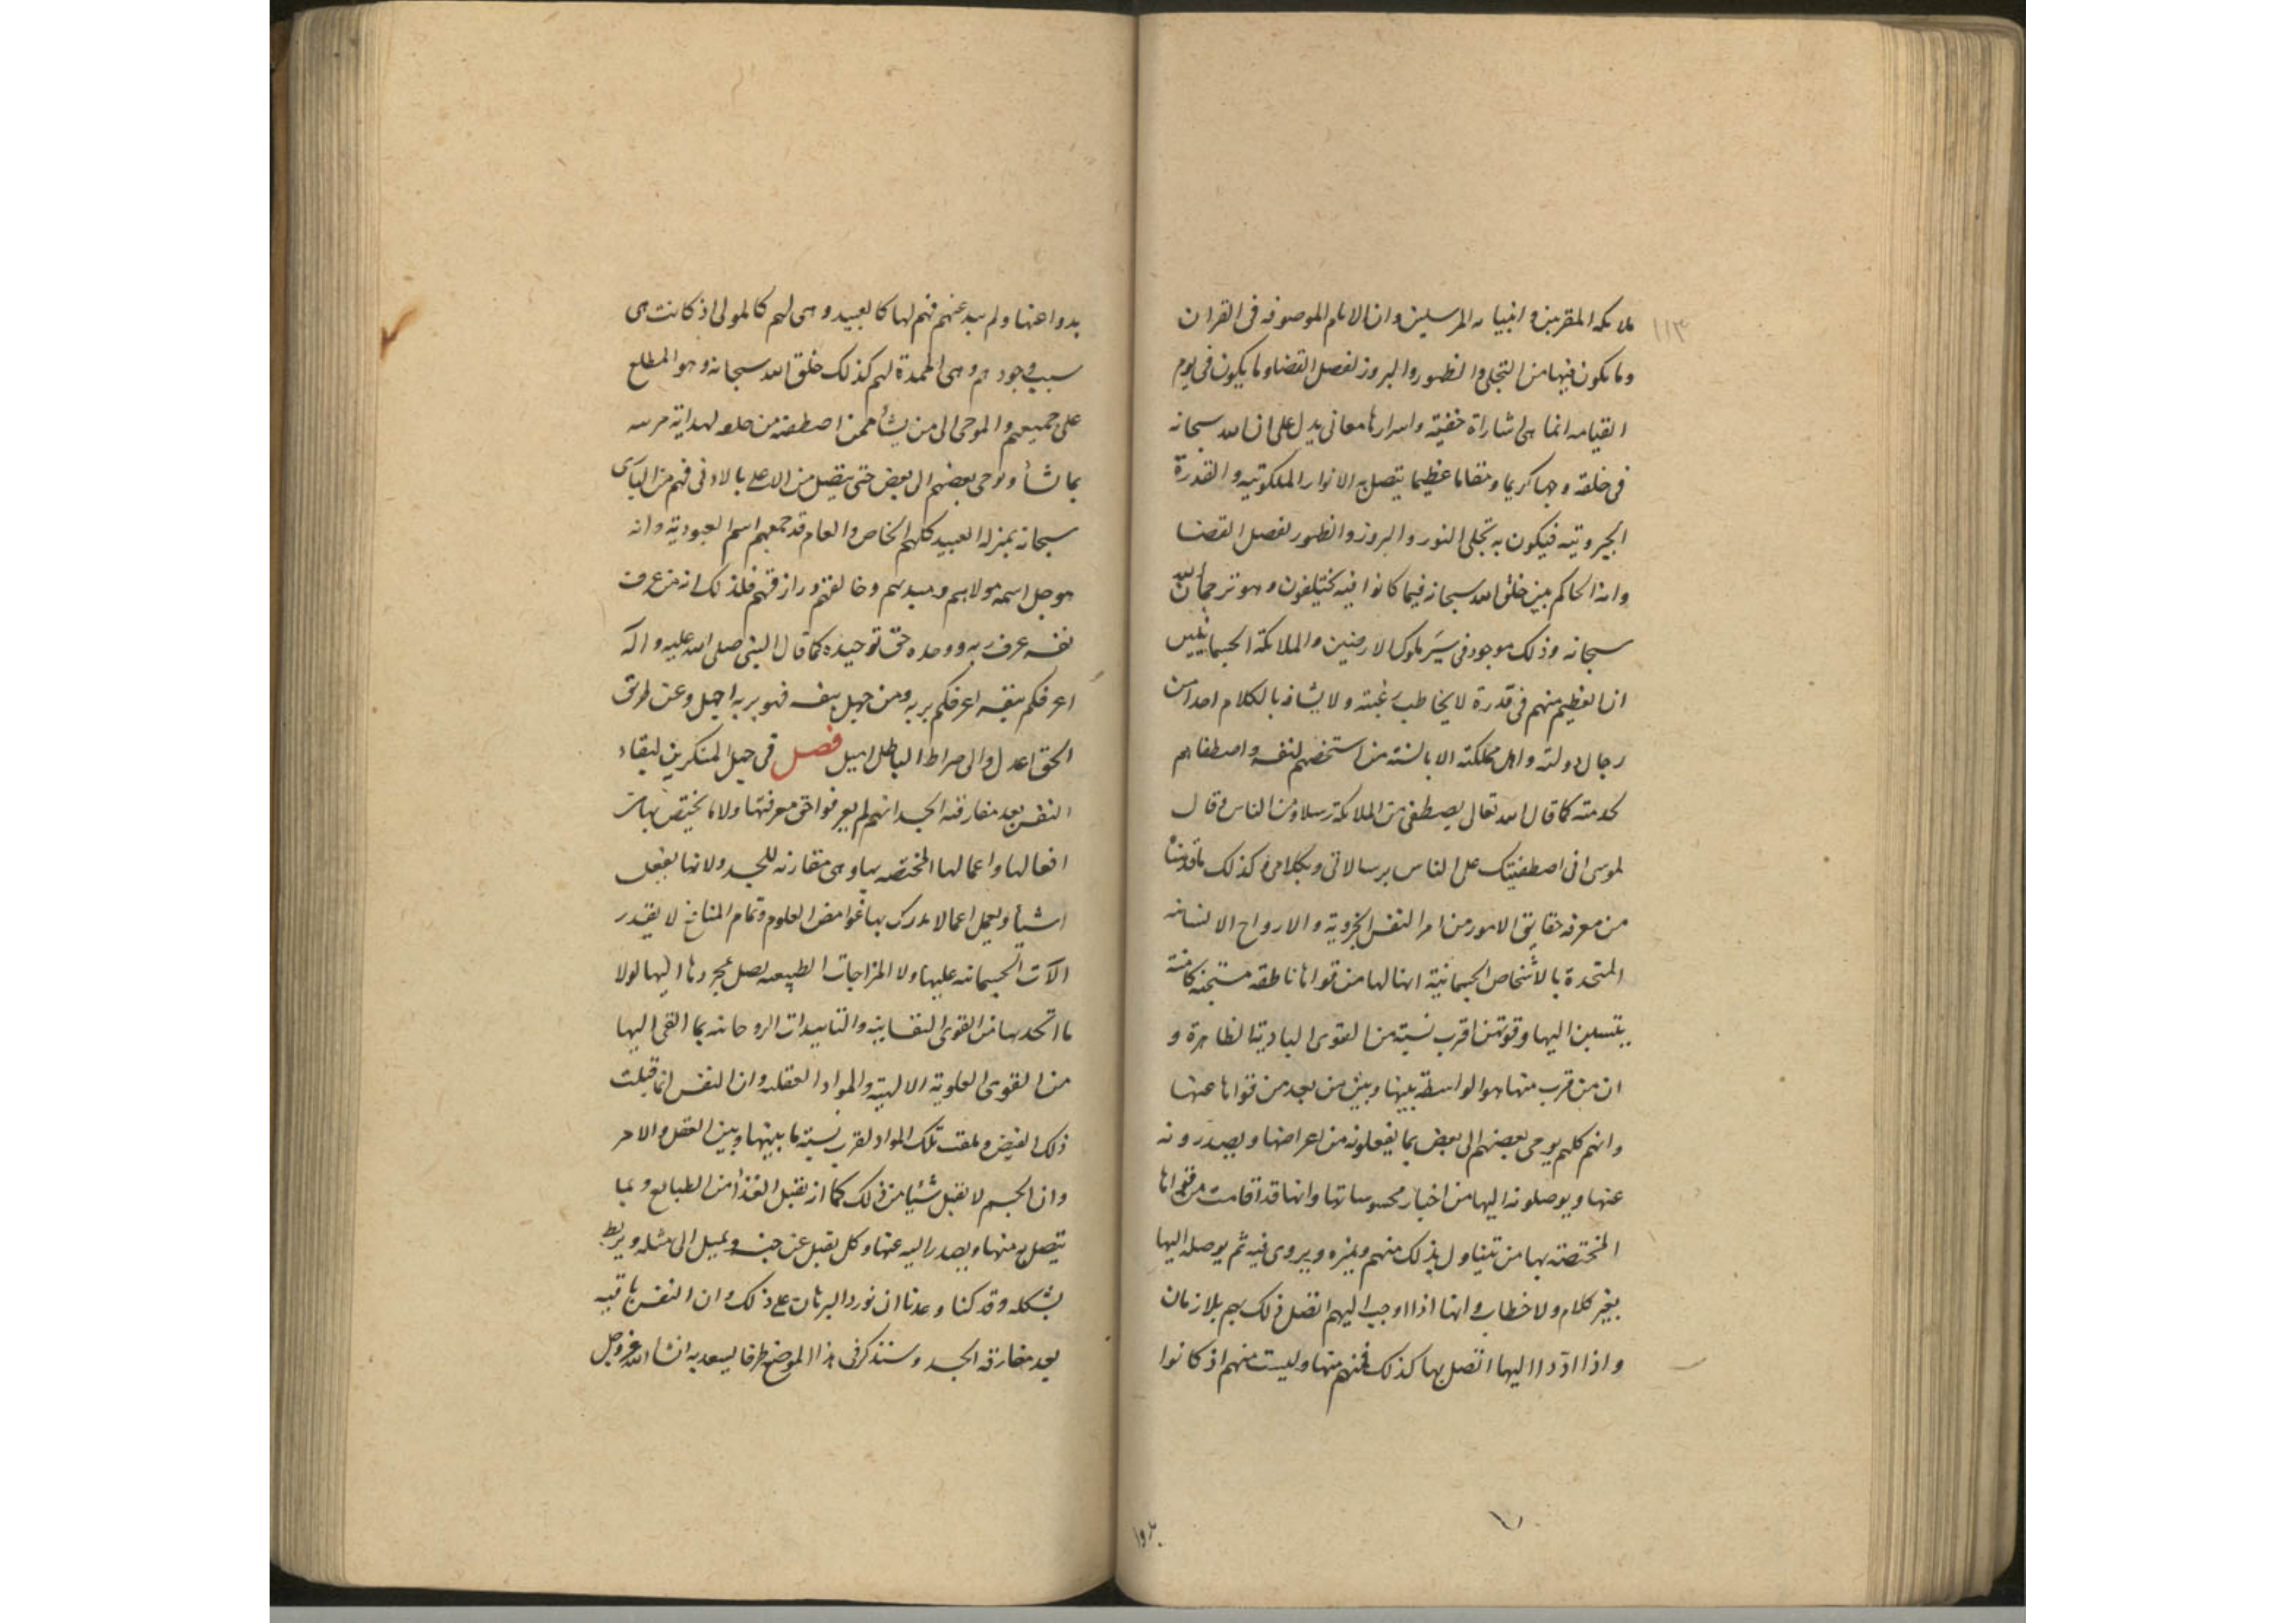 ١١٣
ملائكه المقربين و انبيائه المرسلين وان الايام الموصوفه فى القران
وما يكون فيها من التجلى والظهور والبروز لفصل القضا وما يكون فى يوم
القيامه انما هى اشاراة خفيّة واسرارها معانى يدل على ان الله سبحانه
فى خلقه وجها كريما ومقاما عظيما يتصل به الانوار الملكوتيه والقدرة
الجبروتيه فيكون به تجلى النور والبروز والظهور لفصل القضا
وانه الحاكم بين خلق الله سبحانه فيما كانوا فيه يختلفون وهو ترجمان الله
سبحانه وذلك موجود فى سِيَر ملوك الارضين والملائكة الجسمانيين
ان العظيم منهم فى قدرة لا يخاطب رغبته ولا يشافه بالكلام احدا من
رجال دولته واهل مملكته الا بالسنة من استخصهم لنفسه واصطفاهم
لخدمته كما قال الله تعالى يصطفى من الملائكة رسلا ومن الناس وقال
لموسى انى اصطفيتك على الناس برسالاتى وبكلامى وكذلك ما قدمنا
من معرفه حقايق الامور من امر النفس الجزوية والارواح الانسانيه
المتحدة بالأشخاص الجسمانية انها لها من قواها ناطقه مستجنه كامنة
ينتسبن اليها وقوتهن اقرب نسبة من القوى البادية الظاهرة و
ان من قرب منها هو الواسطة بينها وبين من بعد من قواها عنها
وانهم كلهم يوحى بعضهم الى بعض بما يفعلونه من اعراضها ويصدرونه
عنها ويوصلونه اليها من اخبار محسوساتها وانها قد اقامت من قواها
المختصة بها من يتناول ذلك منهم ويميزه ويروى فيه ثم يوصله اليها
بغير كلام ولا خطاب وانها اذا اوجب اليهم اتصل ذلك بهم بلا زمان
واذا ادّوا اليها اتصل بها كذلك فهم منها وليست منهم اذ كانوا
بدوا عنها ولم تبد عنهم فهم لها كالعبيد وهى لهم كالمولى اذ كانت هى
سبب وجودهم وهى الممدة لهم كذلك خلق الله سبحانه وهو المطلع
على جميعهم والموحى الى من يشأ ممن اصطفته من خلقه لهداية
بما شأ ويوحى بعضهم الى بعض حتى يتصل من الاعلى بالادنى فهم من البارى
سبحانه بمنزله العبيد كلهم الخاص والعام قد جمعهم اسم العبودية وانه
هو جل اسمه مولاهم وسيدهم وخالقهم ورازقهم فلذلك انه من عرف
نفسه عرف ربه ووحده حق توحيده كما قال النبى صلى الله عليه وآله
اعرفكم بنفسه اعرفكم بربه ومن جهل بنفسه فهو بربه اجهل وعن طريق
الحق اعدل والى صراط الباطل اميل فصل فى جهل المنكرين لبقاء
النفس بعد مفارقته الجسد انهم لم يعرفوا حق معرفتها ولا ما يختص بها من
افعالها واعمالها المختصه بها وهى مقارنه للجسد ولانها يفعل
اشيأ ويعمل اعمالا يدرك بها غوامض العلوم وتمام المنافع لا يقدر
الآت الجسمانيه عليها ولا المزاجات الطبيعيه يصل بمجردها اليها لولا
ما اتحد بها من القوى النفسانيه والتاييدات الروحانيه بما القى اليها
من القوى العلوية الالهية والمواد العقليه وان النفس انما قبلت
ذلك الفيض وتلقت تلك المواد لقرب نسبته ما بينها وبين العقل والامر
وان الجسم لا يقبل شيئا من ذلك كما انه يقبل الغذأ من الطبايع وبما
يتصل به منها ويصدر اليه عنها وكل يقبل عن جنسه ويميل الى مثله ويربط
بشكله وقد كنا وعدنا ان نورد البرهان على ذلك وان النفس باقيه
بعد مفارقه الجسد وسنذكر فى هذا الموضع طرفا يسعد به انشا الله عزوجل